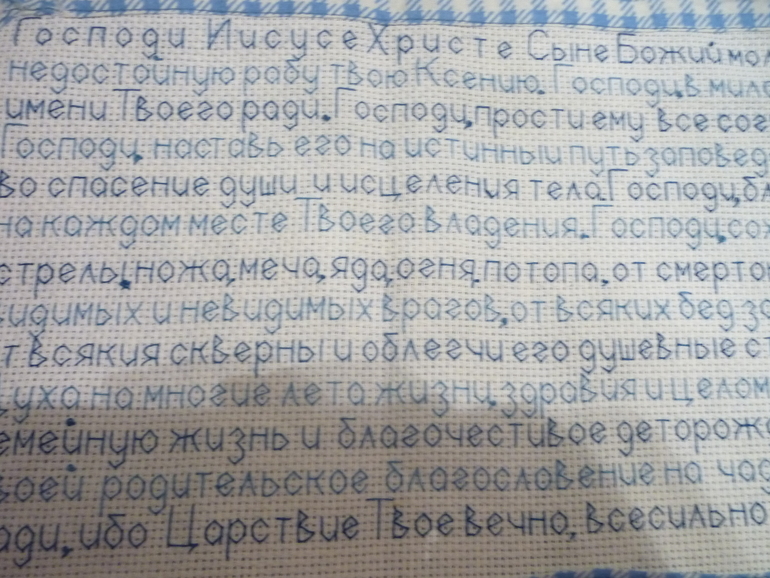 Господи Иисусе Христе Сыне Божий мол
недостойную рабу твою Ксению. Господи, в мило
имени Твоего ради. Господи, прости ему все сог
Господи, наставь его на истинный путь заповед
во спасение души и исцеления тела. Господи, бл
на каждом месте Твоего владения. Господи, сох
стрелы, ножа, меча, яда, огня, потопа, от смертон
видимых и невидимых врагов, от всяких бед зо
т всякия скверны и облегчи его душевные ст
уха на многие лета жизни, здравия и целом
емейную жизнь и благочестивое деторожд
воей родительское благословение на чад
ади, ибо Царствие Твое вечно, всесильно